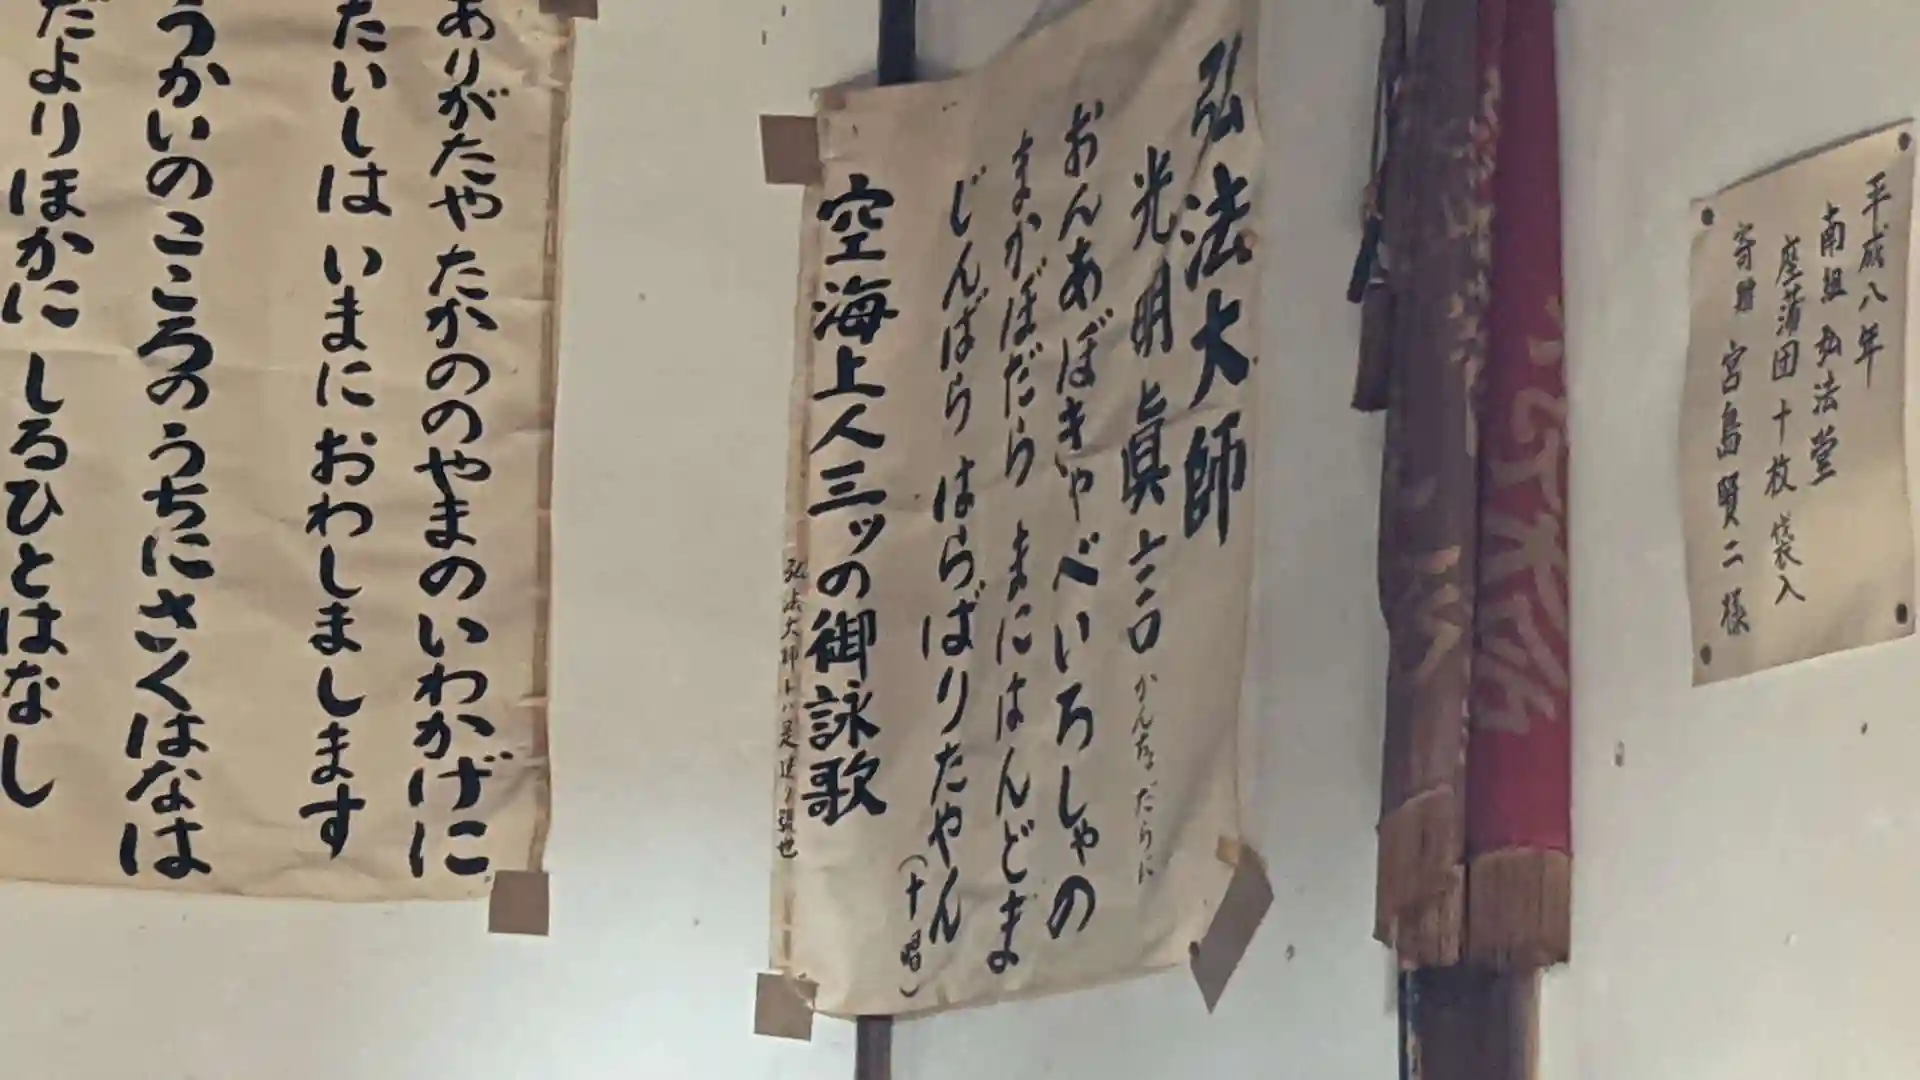 平成八年
南組 弘法堂
座蒲団十枚 袋入
寄贈 宮島賢二様
弘法大師
光明眞言 かんなだらに
おんあぼぎゃべいろしゃの
まかぼだら まにはんどま
じんばら はらばりたやん
(十唱)
空海上人三ッの御詠歌
弘法大師
ありがたや たかののやまのいわかげに
たいしは いまに おわしまします
うかいのこころのうちにさくはなは
だよりほかに しるひとはなし